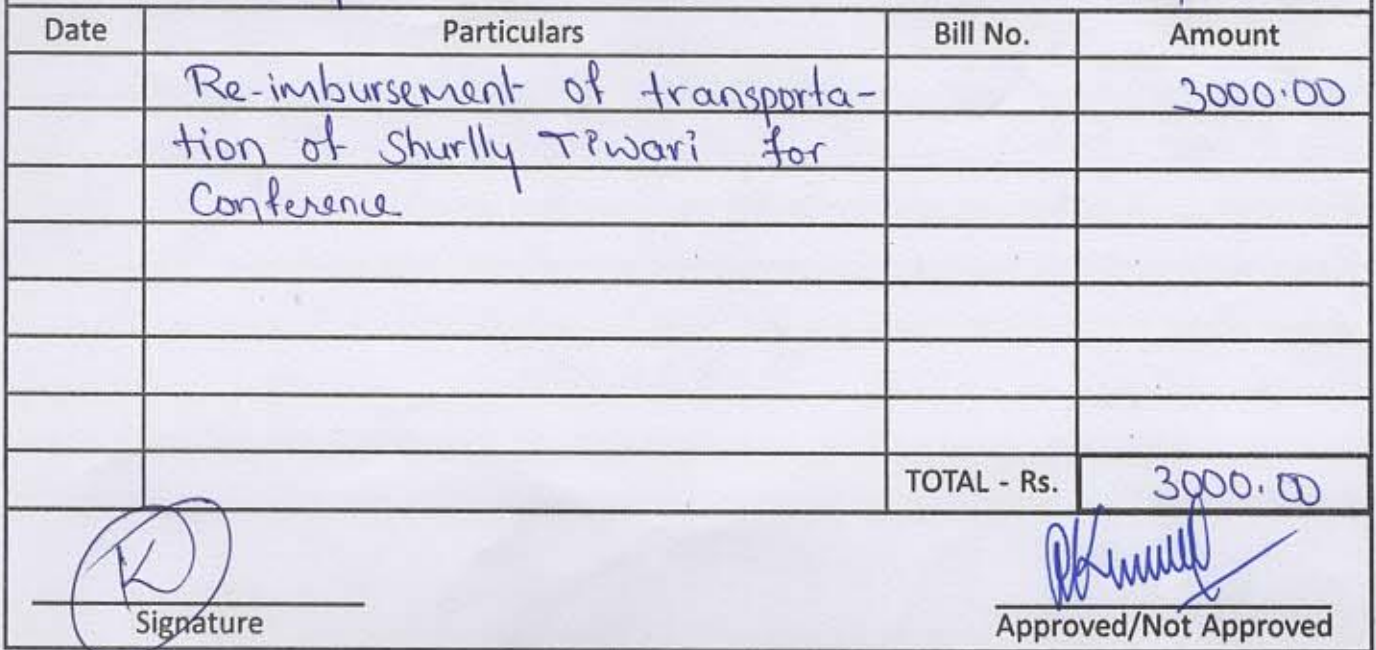 Date Particulars Bill No. Amount
Re-imbursement of transporta- 3000.00
tion of Shurlly Tiwari for
Conference
TOTAL - Rs. 3000.00
K
Signature Approved/Not Approved